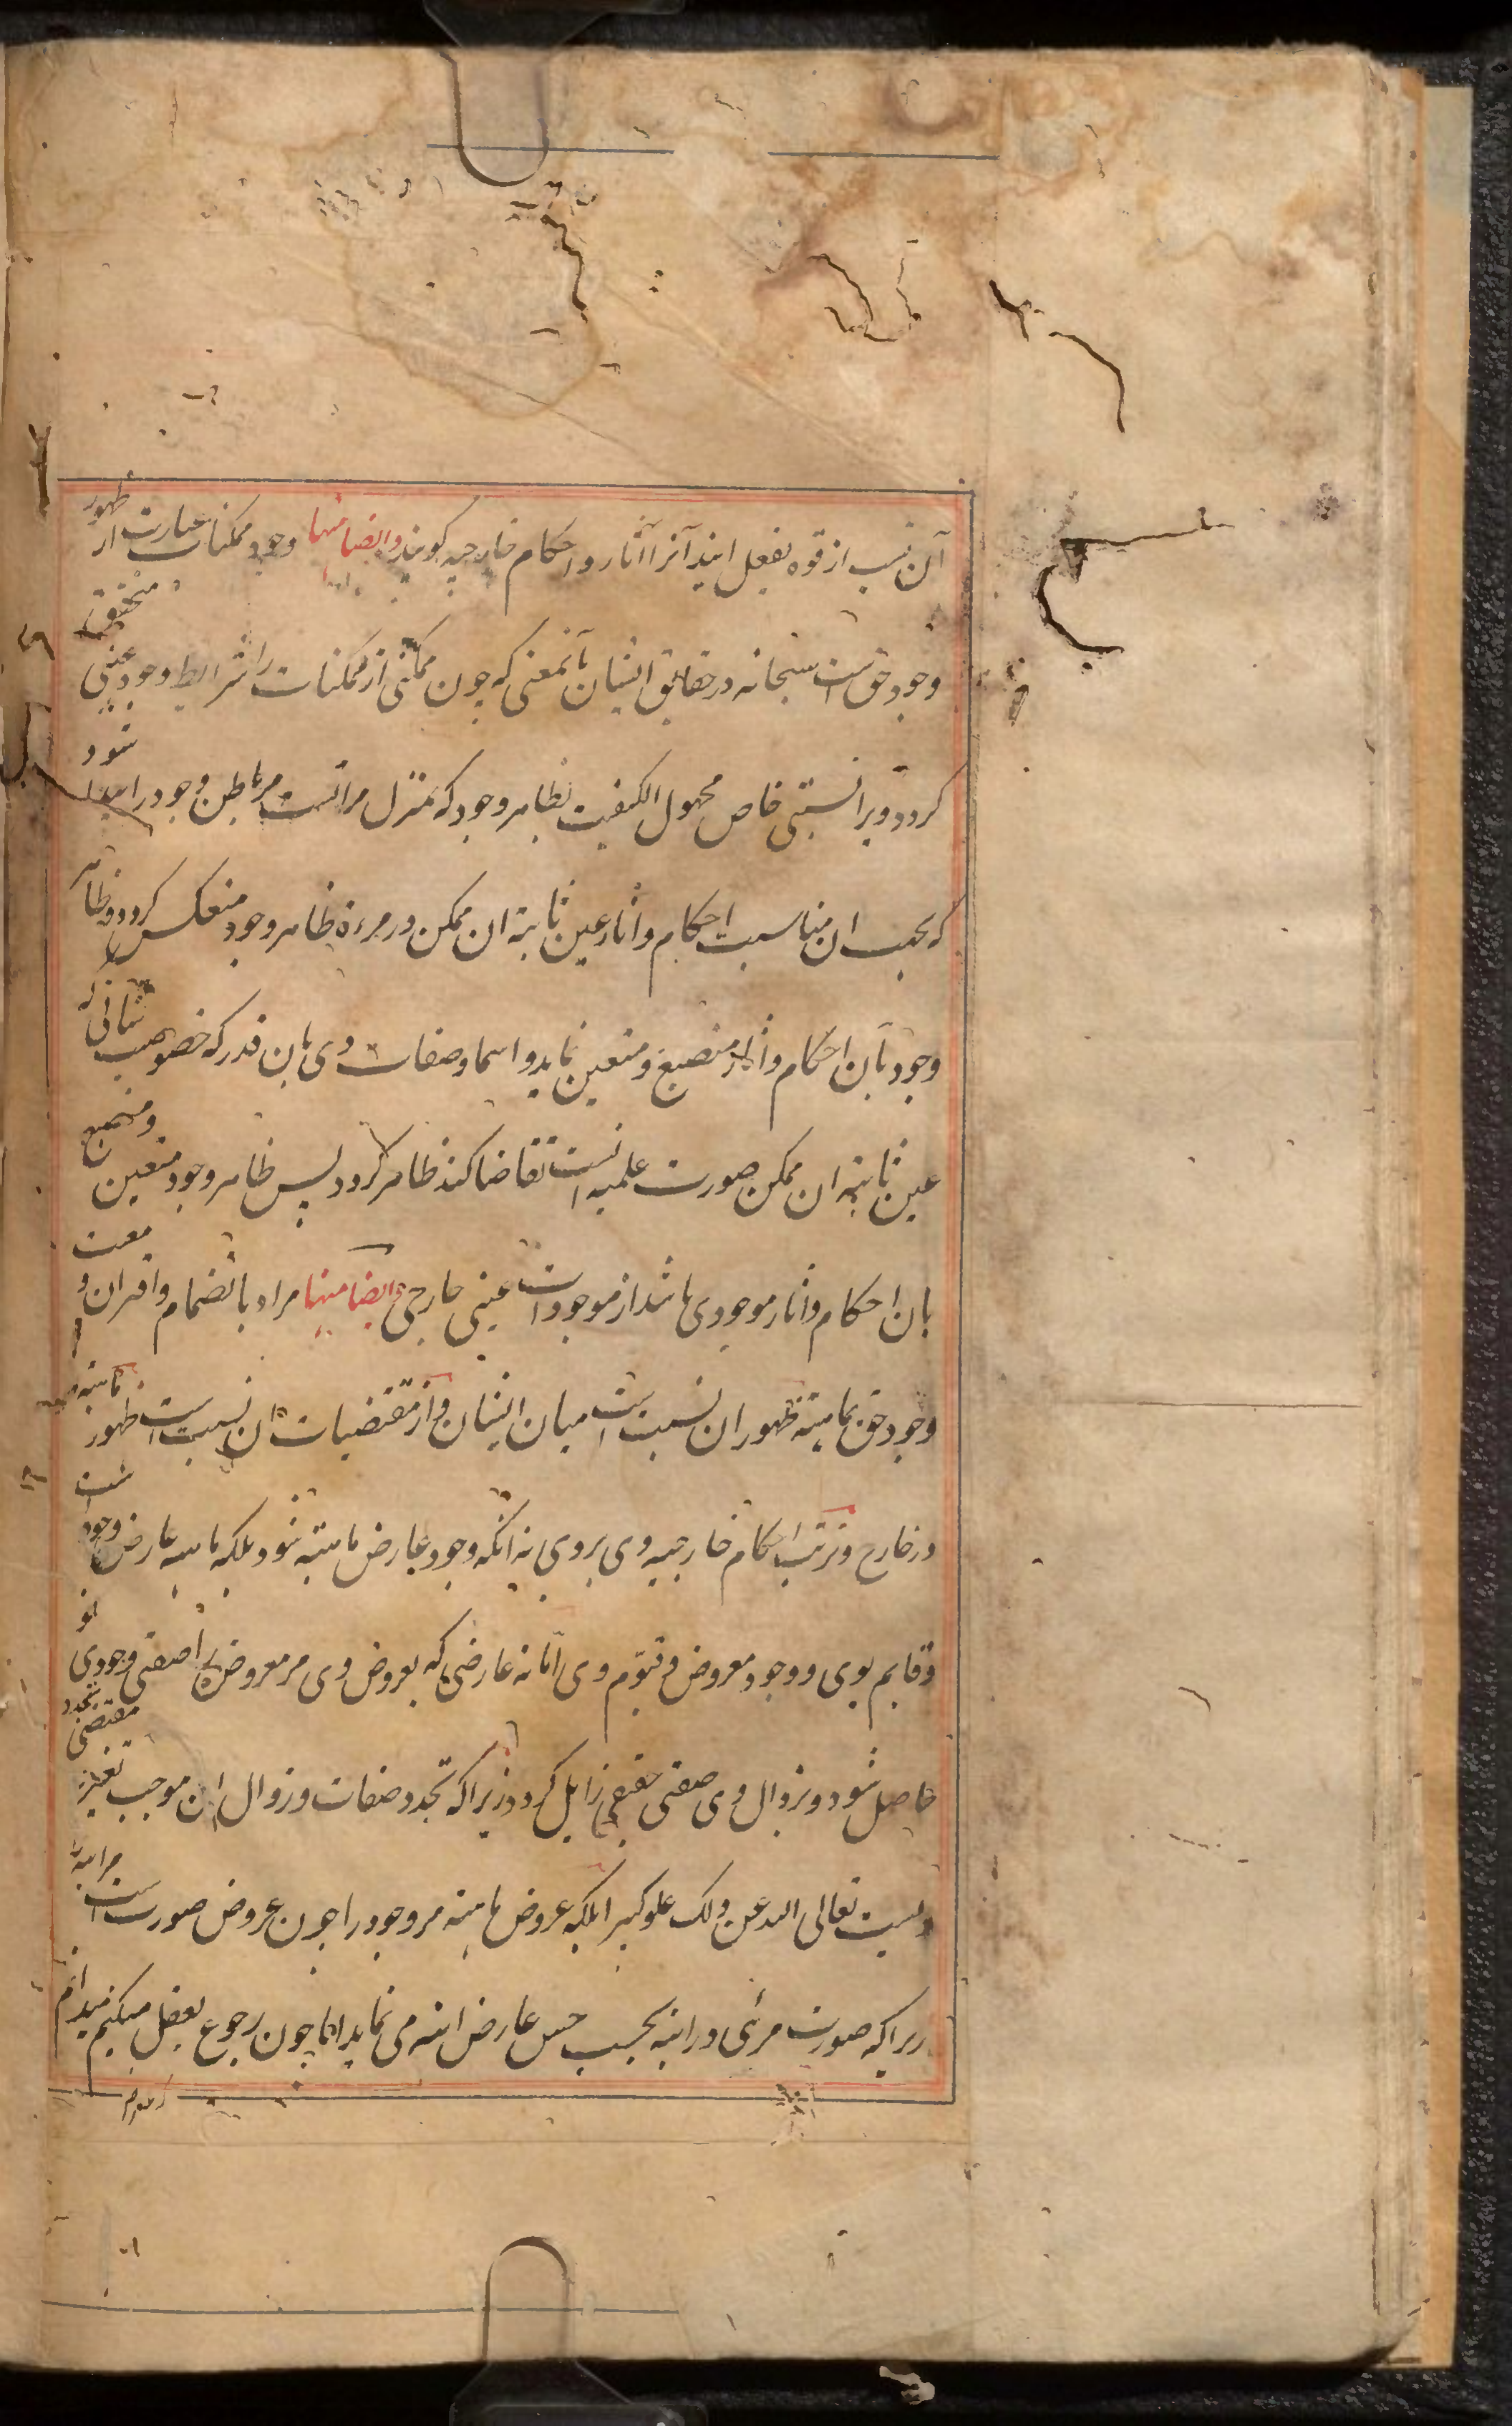 آن نسب از قوه بفعل ایند آنرا آثار و احکام خارجیه کویند و ایضا منها وجود ممکنات عبارت از ظهور
وجود حق است سبحانه در حقایق ایشان بآنمعنی که چون ممکنی از ممکنات را شرایط وجود عینی متحقق
کردد ویرا نسبتی خاص مجهول الکیفیت بظاهر وجود که بمنزل مراتست مر باطن وجود را پیدا شود
که بحسب ان مناسبت احکام و اثار عین ثابته ان ممکن در مرءة ظاهر وجود منعکس کردد و ظاهر
وجود بآن احکام و اثار منصبغ و متعین نماید و اسما و صفات وی بان قدر که خصوصیت شانی که
عین ثابته ان ممکن صورت علمیه انست تقاضا کند ظاهر کردد پس ظاهر وجود متعین و منصبغ
بان احکام و اثار موجودی باشد از موجودات عینی خارجی و ایضا منها مراد بانضمام و اقتران و معیت
وجود حق بماهیته ظهور ان نسبت است میان ایشان و از مقتضیات ان نسبت است ظهور ماهیته
در خارج و ترتب احکام خارجیه وی بر وی نه انکه وجود عارض ماهیته شود بلکه ماهیه عارض وجود است
و قایم بوی و وجود معروض و قیوم وی اما نه عارضی که بعروض وی مر معروض را صفتی وجودی نو
حاصل شود و بزوال وی صفتی حقیقی زایل کردد زیرا که تجدد صفات و زوال ان موجب تغیر و مقتضی تجدد
ویست تعالی الله عن ذلک علوا کبیرا بلکه عروض ماهیته مر وجود را چون عروض صورت است مر اینه را
زیرا که صورت مرئی در اینه بحسب حس عارض اینه می نماید اما چون رجوع بعقل میکنیم میدانیم